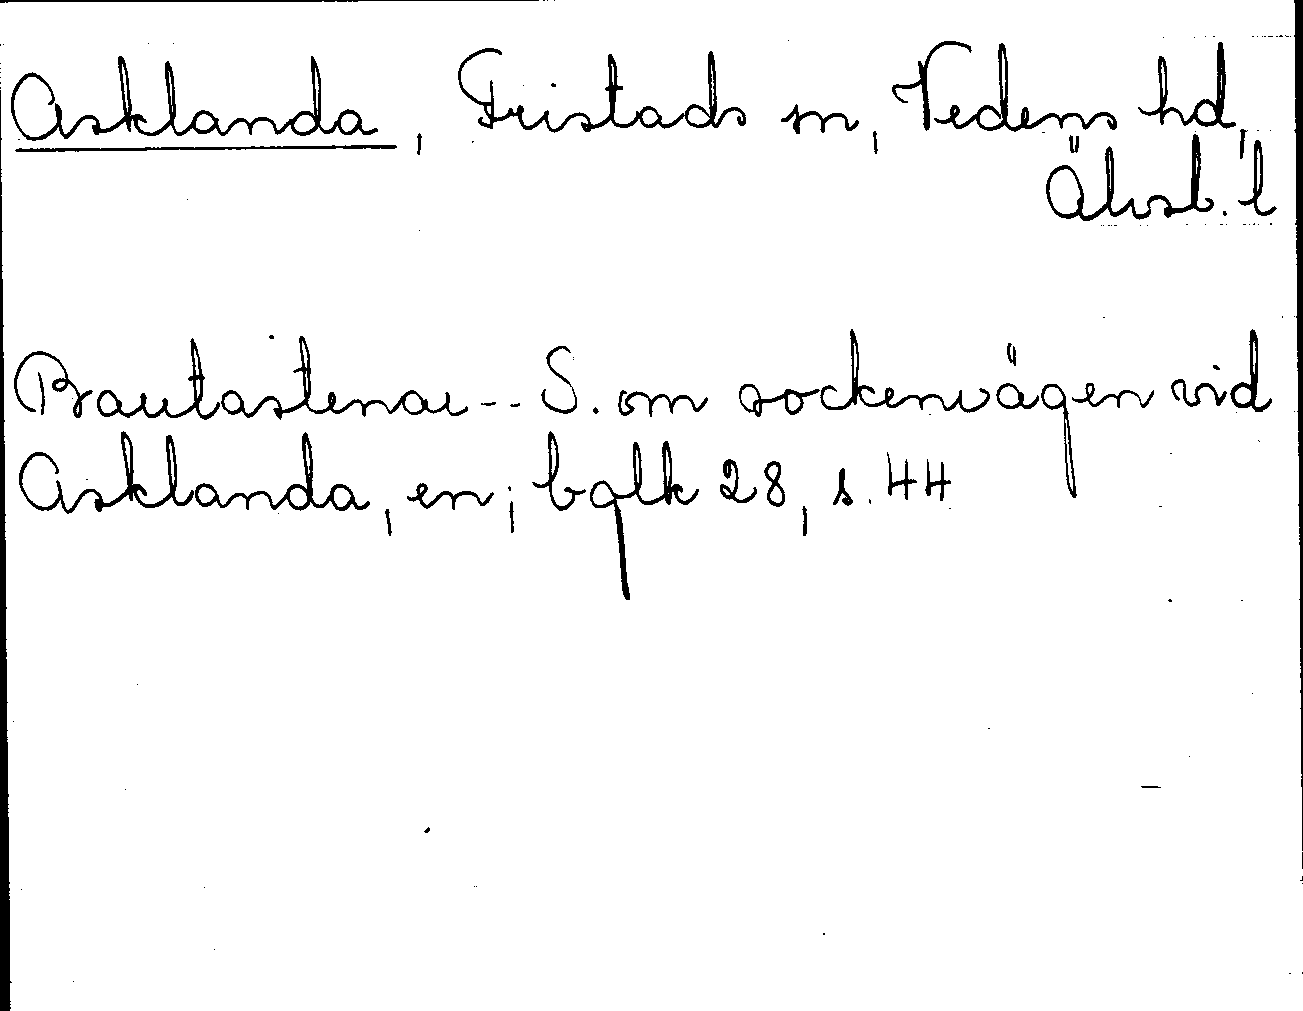 Asklanda, Fristads sn, Vedens hd,
Älvsb. l
Bautastenar -- S. om sockenvägen vid
Asklanda, en; bqlk 28, s. 44